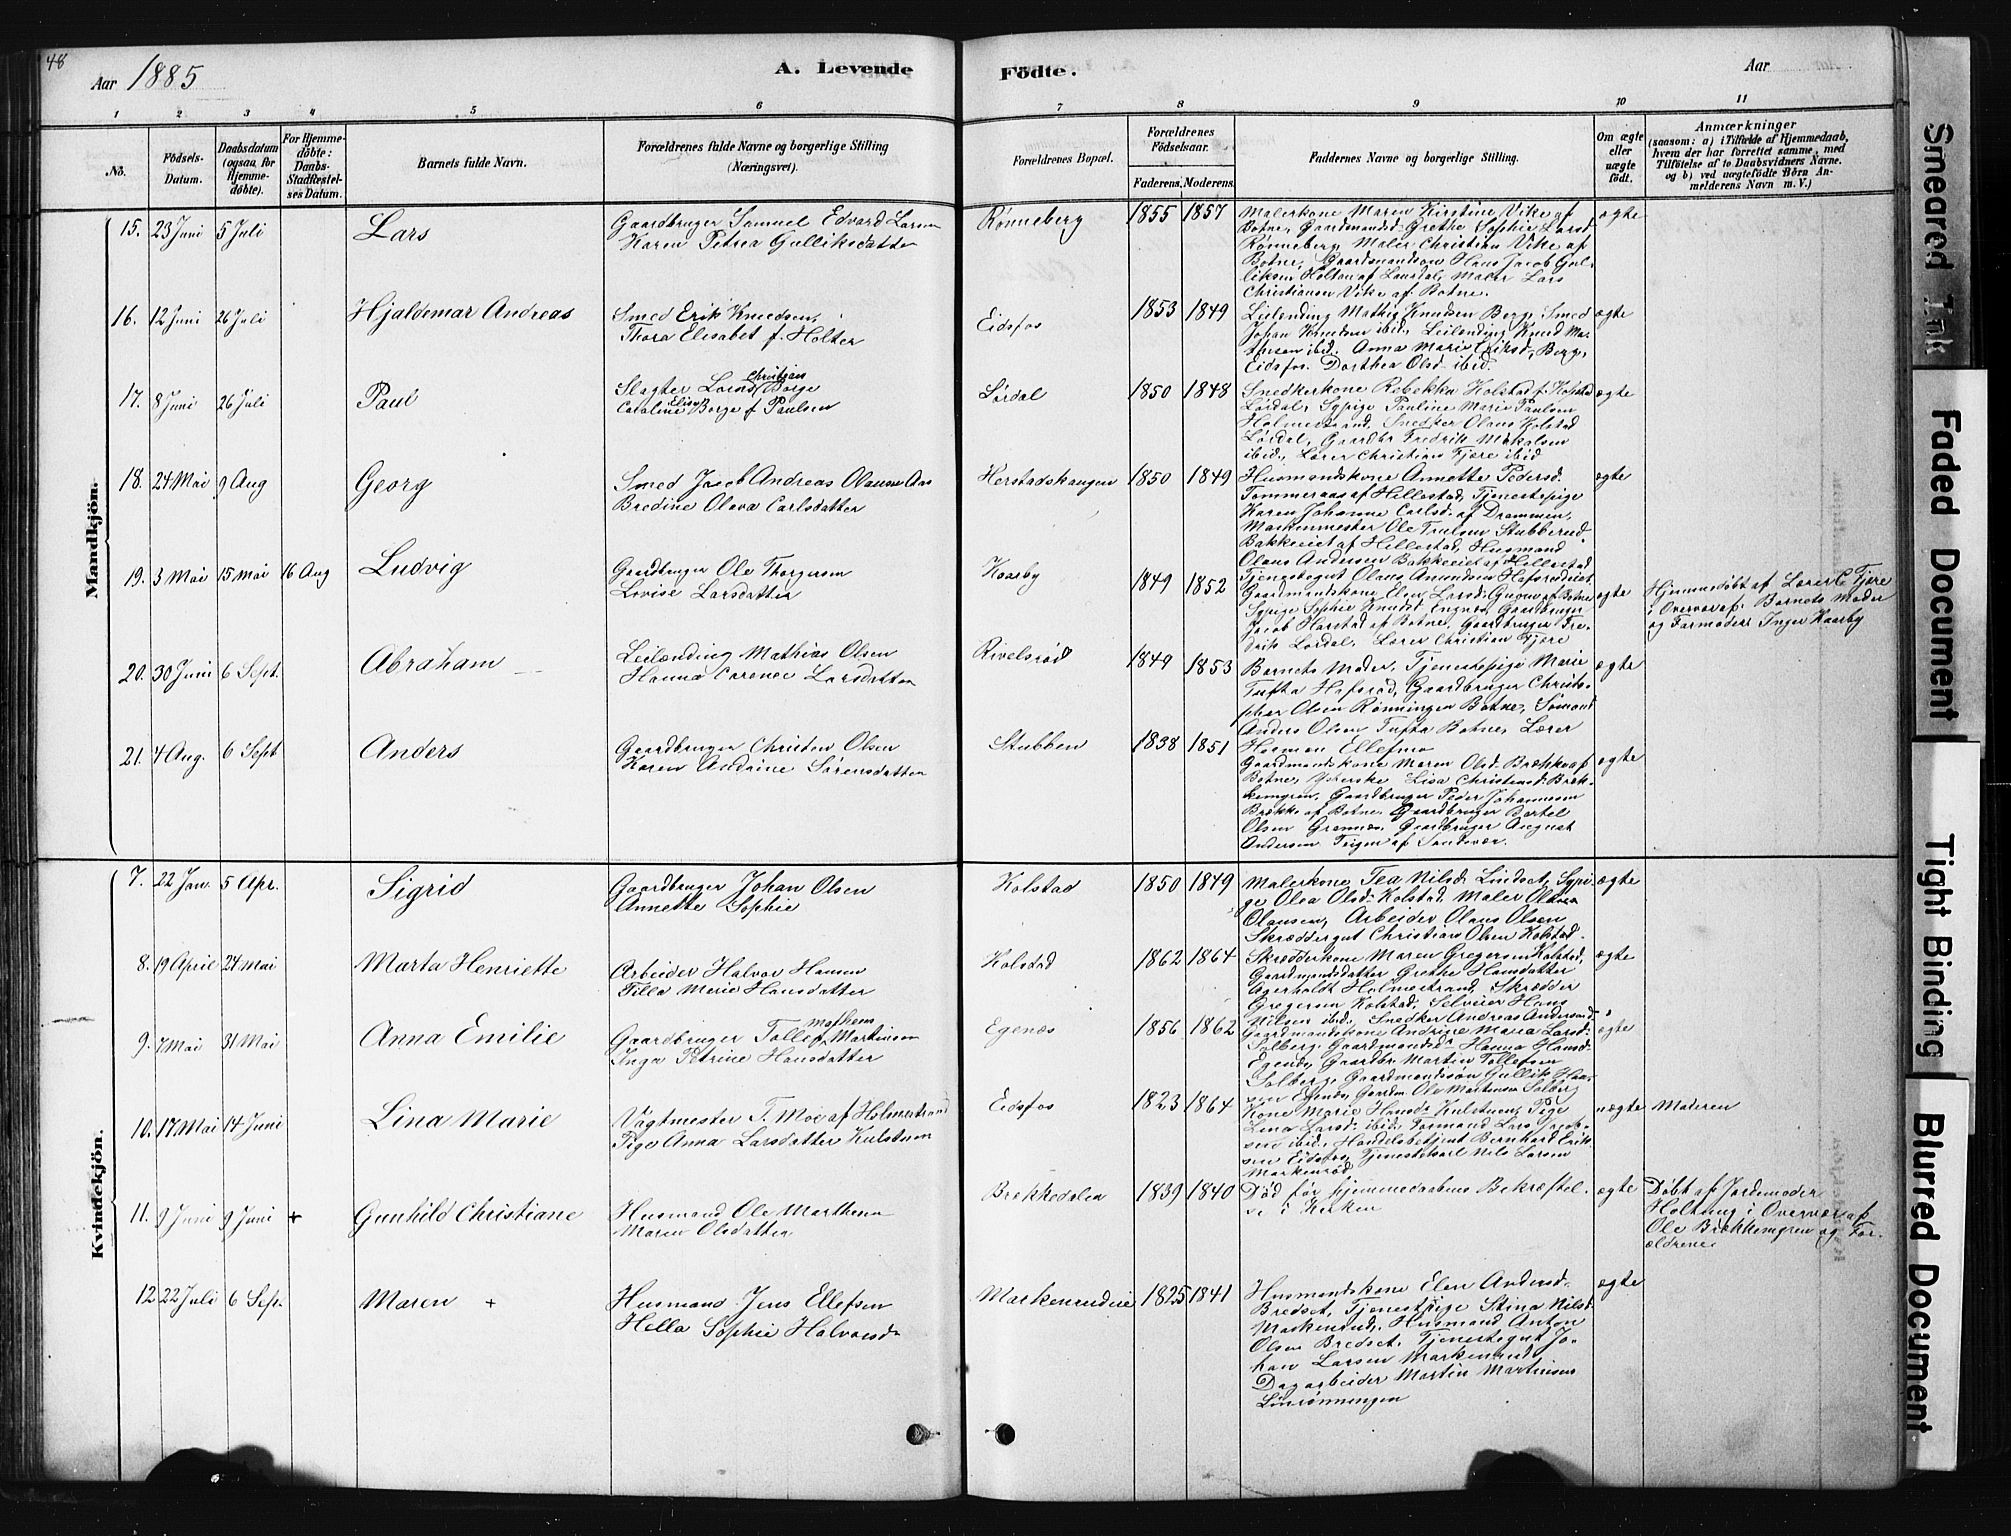 48
Aar 1885
A. Levende
Födte.
Aar
1 2 3 4 5 6 7 8 9 10 11
No.
Födsels-
Datum.
Daabsdatum
(ogsaa for
Hjemme-
döbte).
For Hjemme-
döbte:
Daabs-
Stadfæstel-
ses Datum.
Barnets fulde Navn.
Forældrenes fulde Navne og borgerlige Stilling
(Næringsvei).
Forældrenes Bopæl.
Forældrenes
Födselsaar.
Faderens. Moderens.
Faddernes Navne og borgerlige Stilling.
Om ægte
eller
uægte
födt.
Anmærkninger
(saasom: a) i Tilfælde af Hjemmedaab,
hvem der har forrettet samme, med
Tilföielse af to Daabsvidners Navne,
og b) ved uægtefödte Börn An-
melderens Navn m. V.)
Mandkjön.
15. 23 Juni 5 Juli Lars
Gaardbruger Samuel Edvard Larsen
Karen Petrea Gulliksdatter
Rønneberg 1855 1857
Malerkone Maren Kirstine Vike af
Botne, Gaardmandsd. Grethe Sophie Larsd.
Rønneberg, Maler Christian Vike af
Botne, Gaardmandsøn Hans Jacob Gul-
liksen Holtan af Laurdal, Maler Lars
Christiansen Vike af Botne.
ægte
16. 12 Juni 26 Juli Hjaldemar Andreas
Smed Erik Knudsen,
Thora Elisabet f. Holter
Eidsfos 1853 1849
Leilending Mathis Knudsen Berg, Smed
Johan Knudsen ibid, Leilending Knud Ma-
thisen ibid. Anna Marie Eriksd. Berg,
Eidsfos. Dorthea Olsd. ibid.
ægte
17. 8 Juni 26 Juli Paul
Slagter Lorens Christian Borge
Caroline Elise Borge f. Paulsen
Lørdal 1850 1848
Snedkerkone Rebekka Kolstad f. Kolstad
Lørdal, Sypige Pauline Marie Paulsen
Holmestrand, Snedker Olaus Kolstad
Lørdal, Gaardbr. Fredrik Mikalsen
ibid., Lærer Christian Fjære ibid
ægte
18. 24 Mai 9 Aug Georg
Smed Jacob Andreas Olausen Aas
Bredine Olava Carlsdatter
Herstadskaugen 1850 1849
Husmandskone Annette Pedersd.
Tommeraas af Hillestad, Tjenestepige
Karen Johanne Carlsd. af Drammen,
Maskenmester Ole Trulsen Stubberud-
Bakkeeiet af Hillestad, Husmand
Olaus Andersen Bakkeeiet af Hillestad
Tjenestegut Olaus Amundsen Hafsrødeiet
ægte
19. 3 Mai 15 Mai 16 Aug Ludvig
Gaardbruger Ole Thorgersen
Lovise Larsdatter
Kaarby 1849 1852
Gaardmandskone Elen Larsd. Gunnæs af Botne
Sypige Sophie Knudsd. Engnæs, Gaardbruger
Jacob Harstad af Botne, Gaardbruger Fre-
drik Lørdal, Lærer Christian Fjære
ægte
Hjemmedøbt af Lærer C. Fjære
i Overvær af Barnets Moder
og Farmoder Inger Kaarby
20. 30 Juni 6 Sept. Abraham
Leilænding Mathias Olsen
Hanna Carence Larsdatter
Rivelsrød 1849 1853
Barnets Moder, Tjenestepige Marie
Tufta Hafsrød, Gaardbruger Christo-
pher Olsen Rønningen Botne, Sømand
Anders Olsen Tufta Botne, Lærer
Herman Ellefsen
ægte
21. 4 Aug. 6 Sept Anders
Gaardbruger Christen Olsen
Karen Andrine Sørensdatter
Stubben 1838 1851
Gaardmandskone Maren Olsd. Brække af
Botne, Lisa Christensd. Bræk-
kemgren, Gaardbruger Peder Johannesen
Brække af Botne, Gaardbruger Bertel
Olsen Grennæs, Gaardbruger August
Andersen Teigen af Sandsvær.
ægte
Kvindekjön.
7. 22 Jan. 5 Apr. Sigrid
Gaardbruger Johan Olsen
Annette Sophie
Kolstad 1850 1849
Malerkone Tea Nilsd. Lindset, Sypi-
ge Olea Olsd. Kolstad, Maler
Olausen, Arbeider Olaus Olsen
Skræddergut Christian Olsen Kolstad.
ægte
8. 19 April 24 Mai Marta Henriette
Arbeider Halvor Hansen
Tilla Marie Hansdatter
Kolstad 1862 1864
Skrædderkone Maren Gregersen Kolstad,
Gaardmandsdatter Grethe Hansdatter
Agerholdt Holmestrand, Skrædder
Gregersen Kolstad, Selveier Hans
Nilsen ibid., Snedker Andreas Andersen
ægte
9. 7 Mai 31 Mai Anna Emilie
Gaardbruger Tollef Mathens Martinsen
Inga Petrine Hansdatter
Egenæs 1856 1862
Gaardmandskone Andrine Maria Larsd.
Solberg, Gaardmandsd. Hanna Hansd.
Egenæs, Gaardbr. Martin Tollefsen
Solberg, Gaardmandssøn Gullik Han-
sen Egenæs, Gaardm. Ole Martinsen Solberg
ægte
10. 17 Mai 14 Juni Lina Marie
Vagtmester T. Moe af Holmestrand
Pige Anna Larsdatter Kulstuen
Eidsfos 1823 1864
Kone Marie Hansd. Kulstuen, Pige
Lena Larsd. ibid, Formand Lars
ibid, Handelsbetjent Bernhard Erik-
sen Eidsfos, Tjenestekarl Nils Larsen
Markerød
uægte Moderen
11. 9 Juni 9 Juni + Gunhild Christiane
Husmand Ole Marthens
Maren Olsdatter
Brækkedalen 1839 1840
Død før Hjemmedaabens Bekræftel-
se i Kirken
ægte
Døbt af Jordemoder
Holtung i Overvær af
Ole Brækkemgren og For-
ældrene.
12 22 Juli 6 Sep. Maren +
Husmand Jens Ellefsen
Hella Sophie Halvorsd.
Markenrudeie 1825 1841
Husmandskone Elen Andersd.
Bredset, Tjenestepige Stina Nilsd.
Markenrud, Husmand Anton
Olsen Bredset, Tjenestegut Jo-
han Larsen Markenrud
Dagarbeider Martin Martinsen
Linrønningen
ægte
Smeared Ink
Faded Document
Tight Binding
Blurred Document